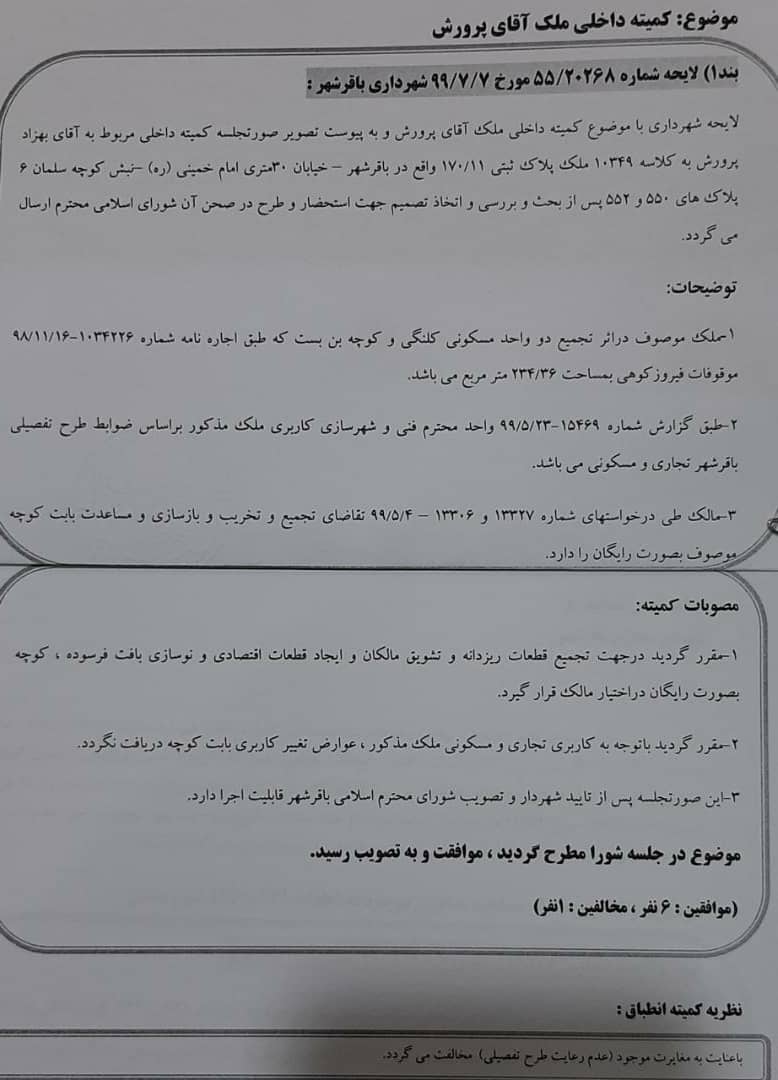 موضوع: کمیته داخلی ملک آقای پرورش
بند۱) لایحه شماره ۵۵/۲۰۲۶۸ مورخ ۹۹/۷/۷ شهرداری باقرشهر :
لایحه شهرداری با موضوع کمیته داخلی ملک آقای پرورش و به پیوست تصویر صورتجلسه کمیته داخلی مربوط به آقای بهزاد
پرورش به کلاسه ۱۰۳۴۹ ملک پلاک ثبتی ۱۷۰/۱۱ واقع در باقرشهر – خیابان ۳۰متری امام خمینی (ره) –نبش کوچه سلمان ۶
پلاک های ۵۵۰ و ۵۵۲ پس از بحث و بررسی و اتخاذ تصمیم جهت استحضار و طرح در صحن آن شورای اسلامی محترم ارسال
می گردد.
توضیحات:
۱-ملک موصوف دراثر تجمیع دو واحد مسکونی کلنگی و کوچه بن بست که طبق اجاره نامه شماره ۱۰۳۴۲۲۶-۹۸/۱۱/۱۶
موقوفات فیروزکوهی بمساحت ۲۳۴/۳۶ متر مربع می باشد.
۲-طبق گزارش شماره ۱۵۴۶۹-۹۹/۵/۲۳ واحد محترم فنی و شهرسازی کاربری ملک مذکور براساس ضوابط طرح تفصیلی
باقرشهر تجاری و مسکونی می باشد.
۳-مالک طی درخواستهای شماره ۱۳۳۲۷ و ۱۳۳۰۶ – ۹۹/۵/۴ تقاضای تجمیع و تخریب و بازسازی و مساعدت بابت کوچه
موصوف بصورت رایگان را دارد.
مصوبات کمیته:
۱-مقرر گردید درجهت تجمیع قطعات ریزدانه و تشویق مالکان و ایجاد قطعات اقتصادی و نوسازی بافت فرسوده ، کوچه
بصورت رایگان دراختیار مالک قرار گیرد.
۲-مقرر گردید باتوجه به کاربری تجاری و مسکونی ملک مذکور ، عوارض تغییر کاربری بابت کوچه دریافت نگردد.
۳-این صورتجلسه پس از تایید شهردار و تصویب شورای محترم اسلامی باقرشهر قابلیت اجرا دارد.
موضوع در جلسه شورا مطرح گردید ، موافقت و به تصویب رسید.
(موافقین : ۶ نفر ، مخالفین : ۱نفر)
نظریه کمیته انطباق :
باعنایت به مغایرت موجود (عدم رعایت طرح تفصیلی) مخالفت می گردد.